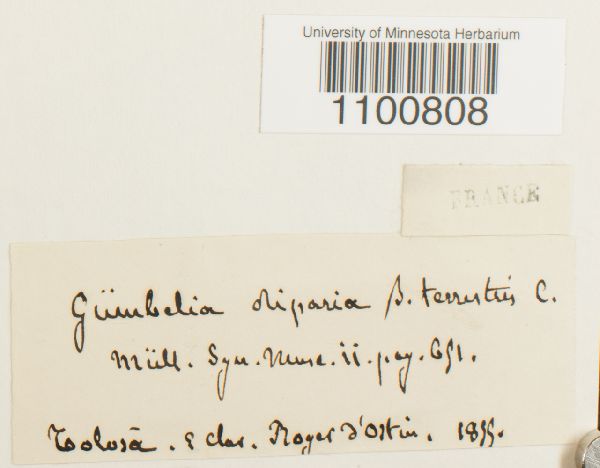 University of Minnesota Herbarium
1100808
FRANCE
Gümbelia riparia β. terrestris C.
Müll. Syn. Musc. ii. pag. 651.
Tolosâ. E clar. Roger d'Ostin. 1855.